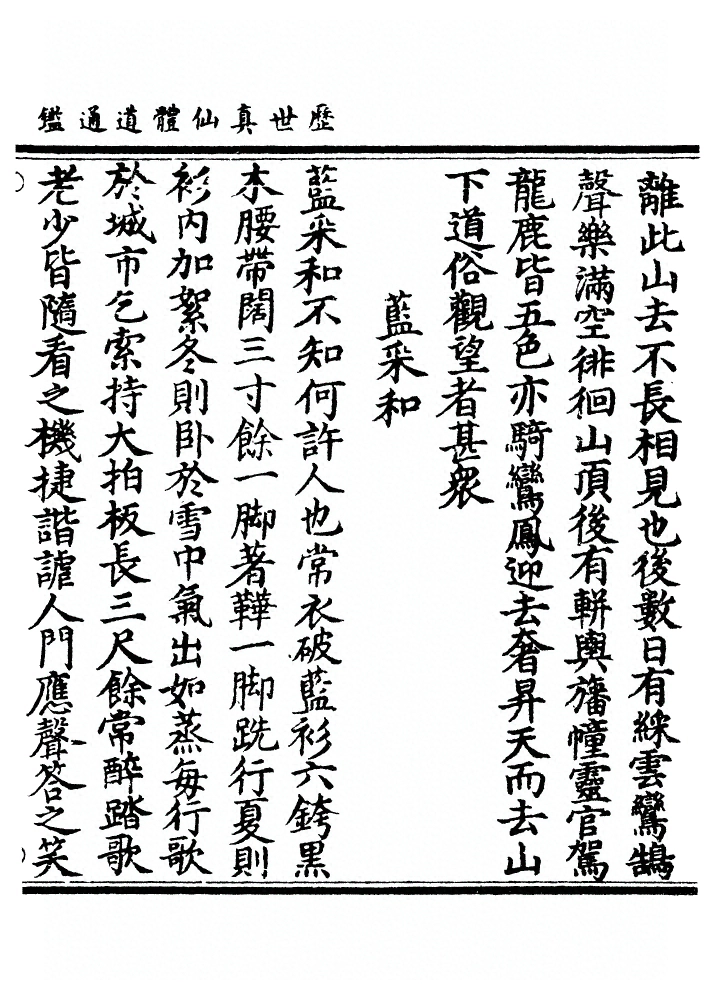 歷世真仙體道通鑑
離此山去不長相見也後數日有綵雲鸞鵠
聲樂滿空徘徊山頂後有軿輿旛幢靈官駕
龍鹿皆五色亦騎鸞鳳迎去奢昇天而去山
下道俗觀望者甚衆
藍采和
藍采和不知何許人也常衣破藍衫六銙黑
木腰帶闊三寸餘一脚著鞾一脚跣行夏則
衫内加絮冬則卧於雪中氣出如蒸每行歌
於城市乞索持大拍板長三尺餘常醉踏歌
老少皆隨看之機捷諧謔人門應聲答之笑